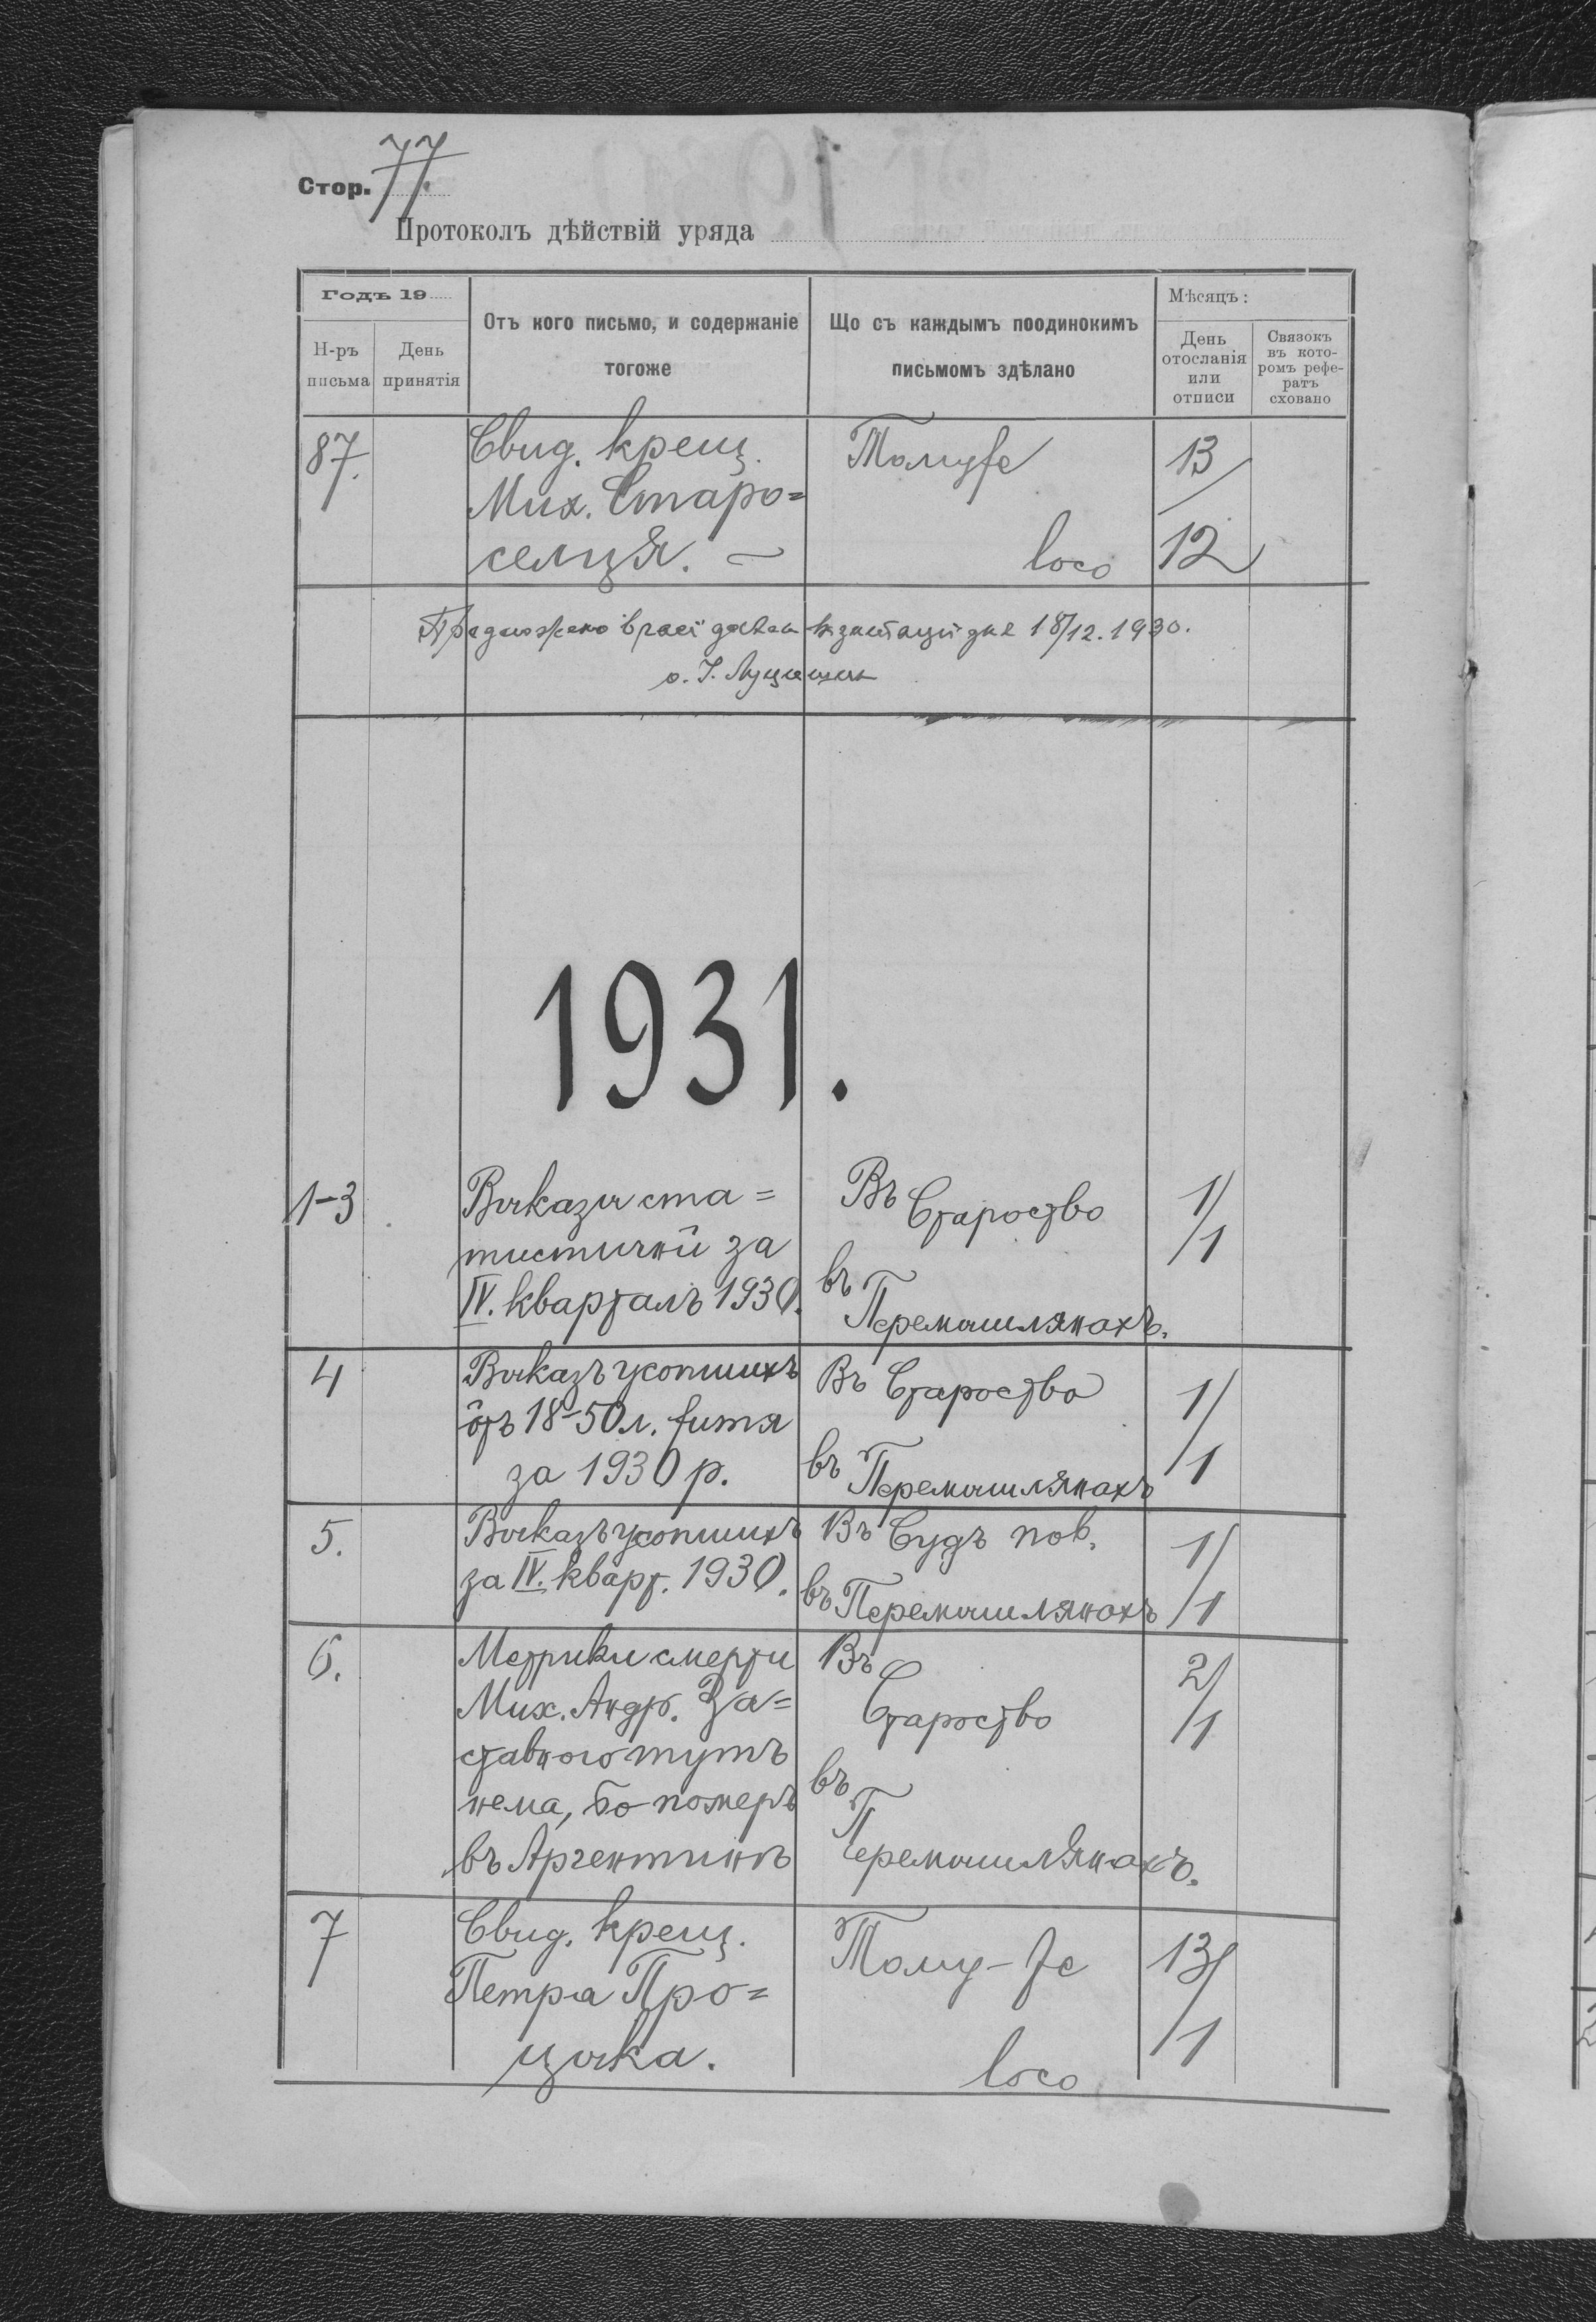 Стор. 77.
Протоколъ дѣйствій уряда
Годъ 19
Н-ръ письма
День принятія
Отъ кого письмо, и содержаніе
тогоже
Що съ каждымъ поодинокимъ
письмомъ здѣлано
Мѣсяцъ:
День
отосланія
или
отписи
Связокъ
въ кото-
ромъ рефе-
ратъ
сховано
87. Свид. крещ. Томуже 13/
Мих. Старо=
селця. – loco 12
Предложено в часї декан візитації дня 18/12.1930.
о. І.
1931.
1-3 Выказы ста= Въ Староство 1/
тистичнй за въ /1
IV. кварталъ 1930. Перемышлянахъ.
4 Выказъ усопшихъ Въ Староство 1/
ôтъ 18-50 л. житя
за 1930 р. въ Перемышлянахъ /1
5. Выказъ усопшихъ Въ Судъ пов. 1/
за IV. кварт. 1930. въ Перемышлянахъ /1
6. Метрики смерти Въ 2/
Мих. Андр. За= Староство /1
ставного тутъ въ
нема, бо померъ
въ Аргентинѣ Перемышлянахъ.
7 Свид. крещ. Тому-же 13/
Петра Про=
цыка. loco /1